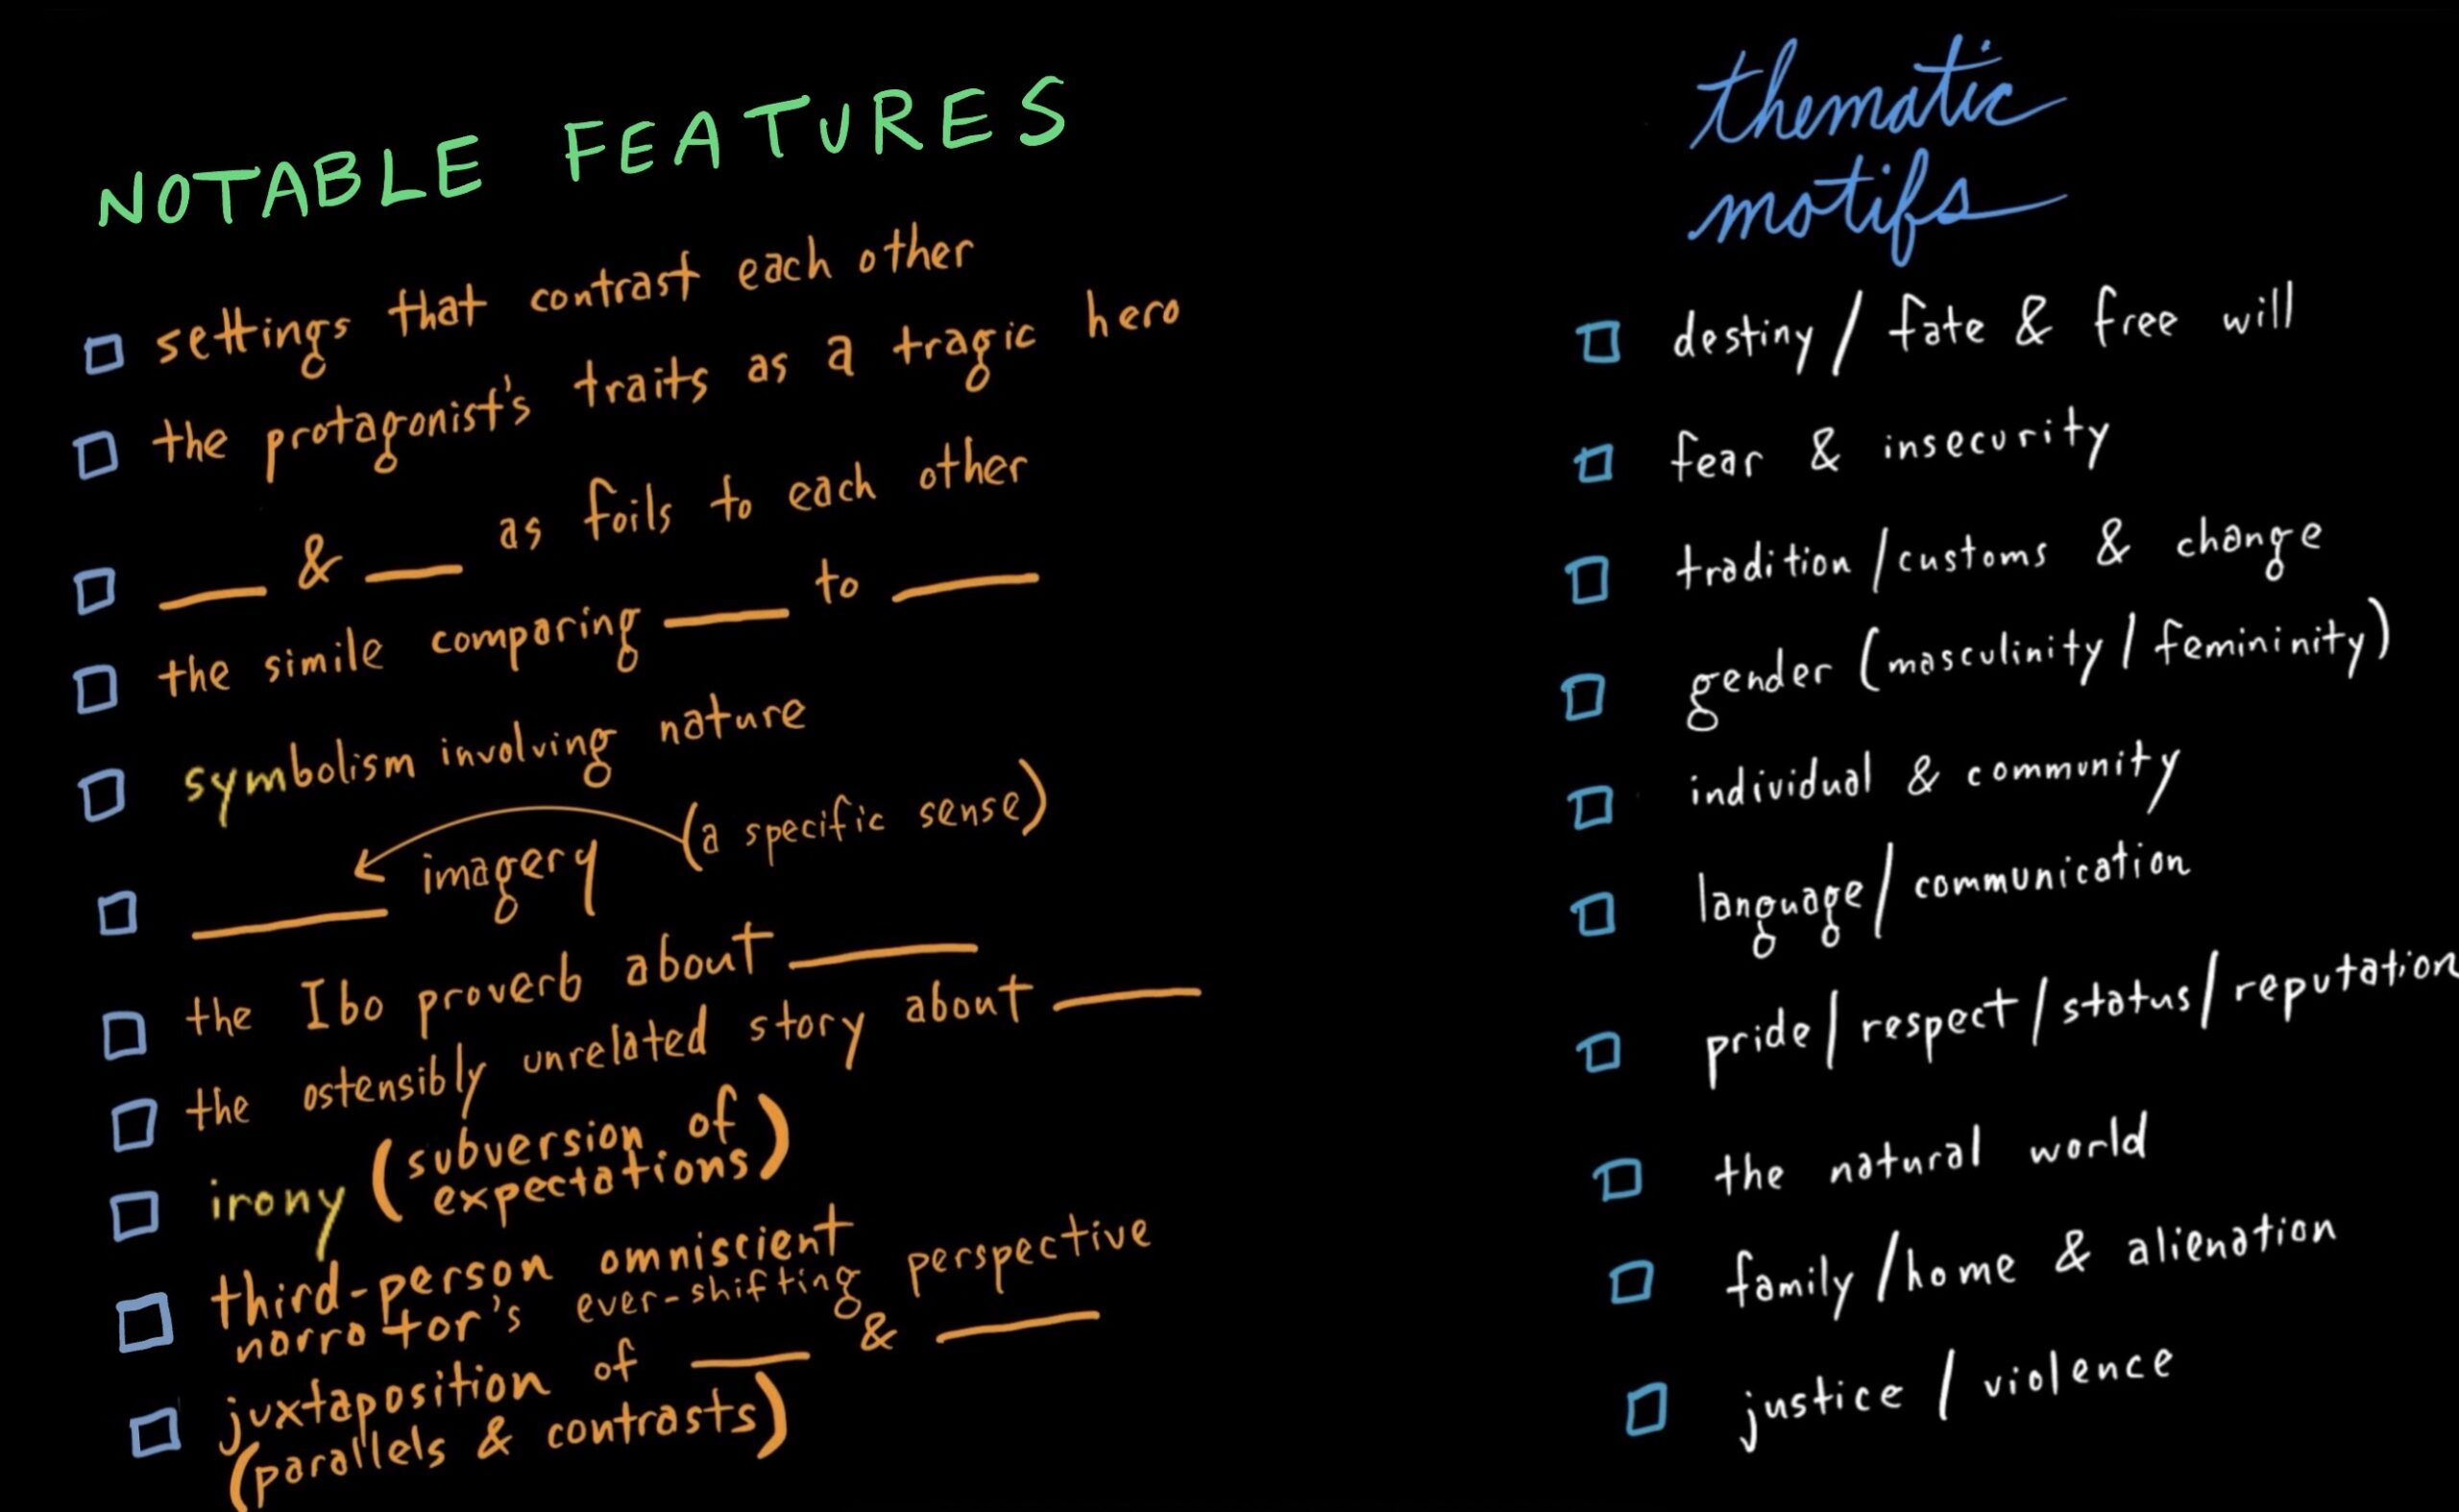 NOTABLE FEATURES
settings that contrast each other
the protagonist's traits as a tragic hero
___ & ___ as foils to each other
the simile comparing ___ to ___
symbolism involving nature
___ imagery (a specific sense)
the Ibo proverb about ___
the ostensibly unrelated story about ___
irony (subversion of
expectations)
third-person omniscient
narrator's ever-shifting perspective
juxtaposition of ___ & ___
(parallels & contrasts)
thematic
motifs
destiny / fate & free will
fear & insecurity
tradition / customs & change
gender (masculinity / femininity)
individual & community
language / communication
pride / respect / status / reputation
the natural world
family / home & alienation
justice / violence